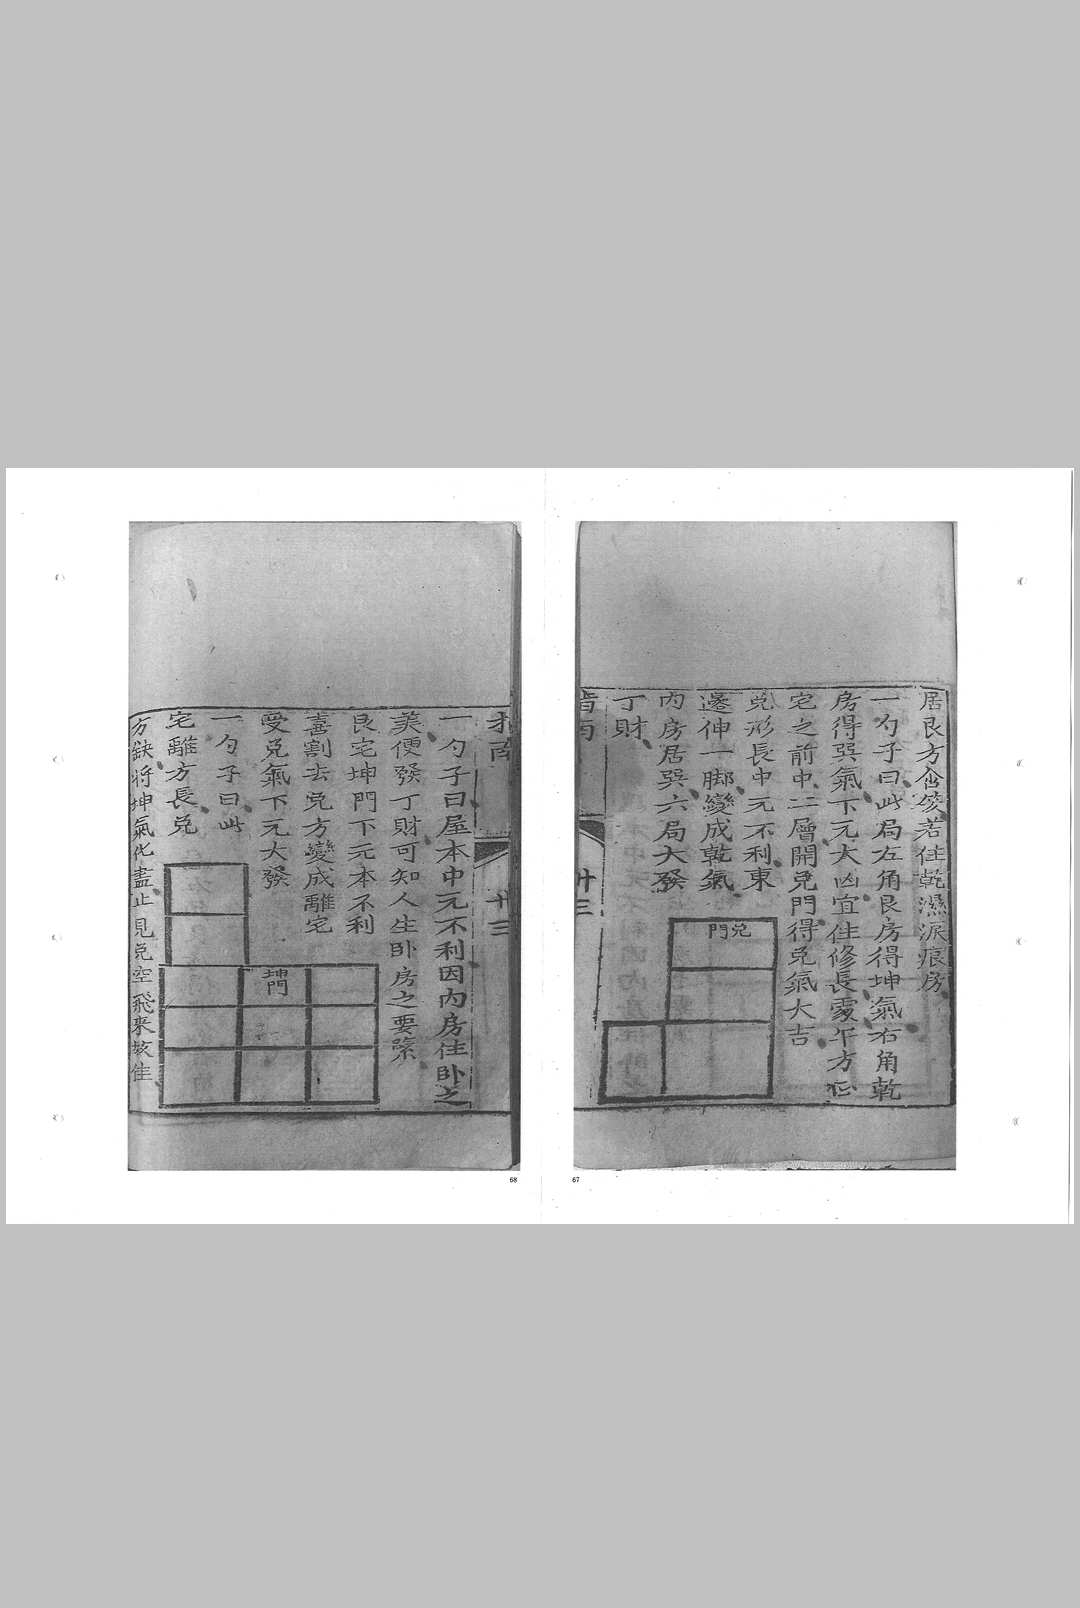 居艮方含笑若住乾濕淚痕房
一勺子曰此局左角艮房得坤氣右角乾
房得巽氣下元大凶宜住修長震午方
宅之前中二層開兌門得兌氣大吉
兌形長中元不利東
邊伸一脚變成乾氣
內房居巽六局大發
丁財
兌門
指南
廿三
67
指南
廿三
一勺子曰屋本中元不利因內房住卧之
美便發丁財可知人生卧房之要緊
艮宅坤門下元本不利
喜割去兌方變成離宅
受兌氣下元大發
一勺子曰此
宅離方長兌
方缺將坤氣化盡止見兌空飛來故佳
坤門
68